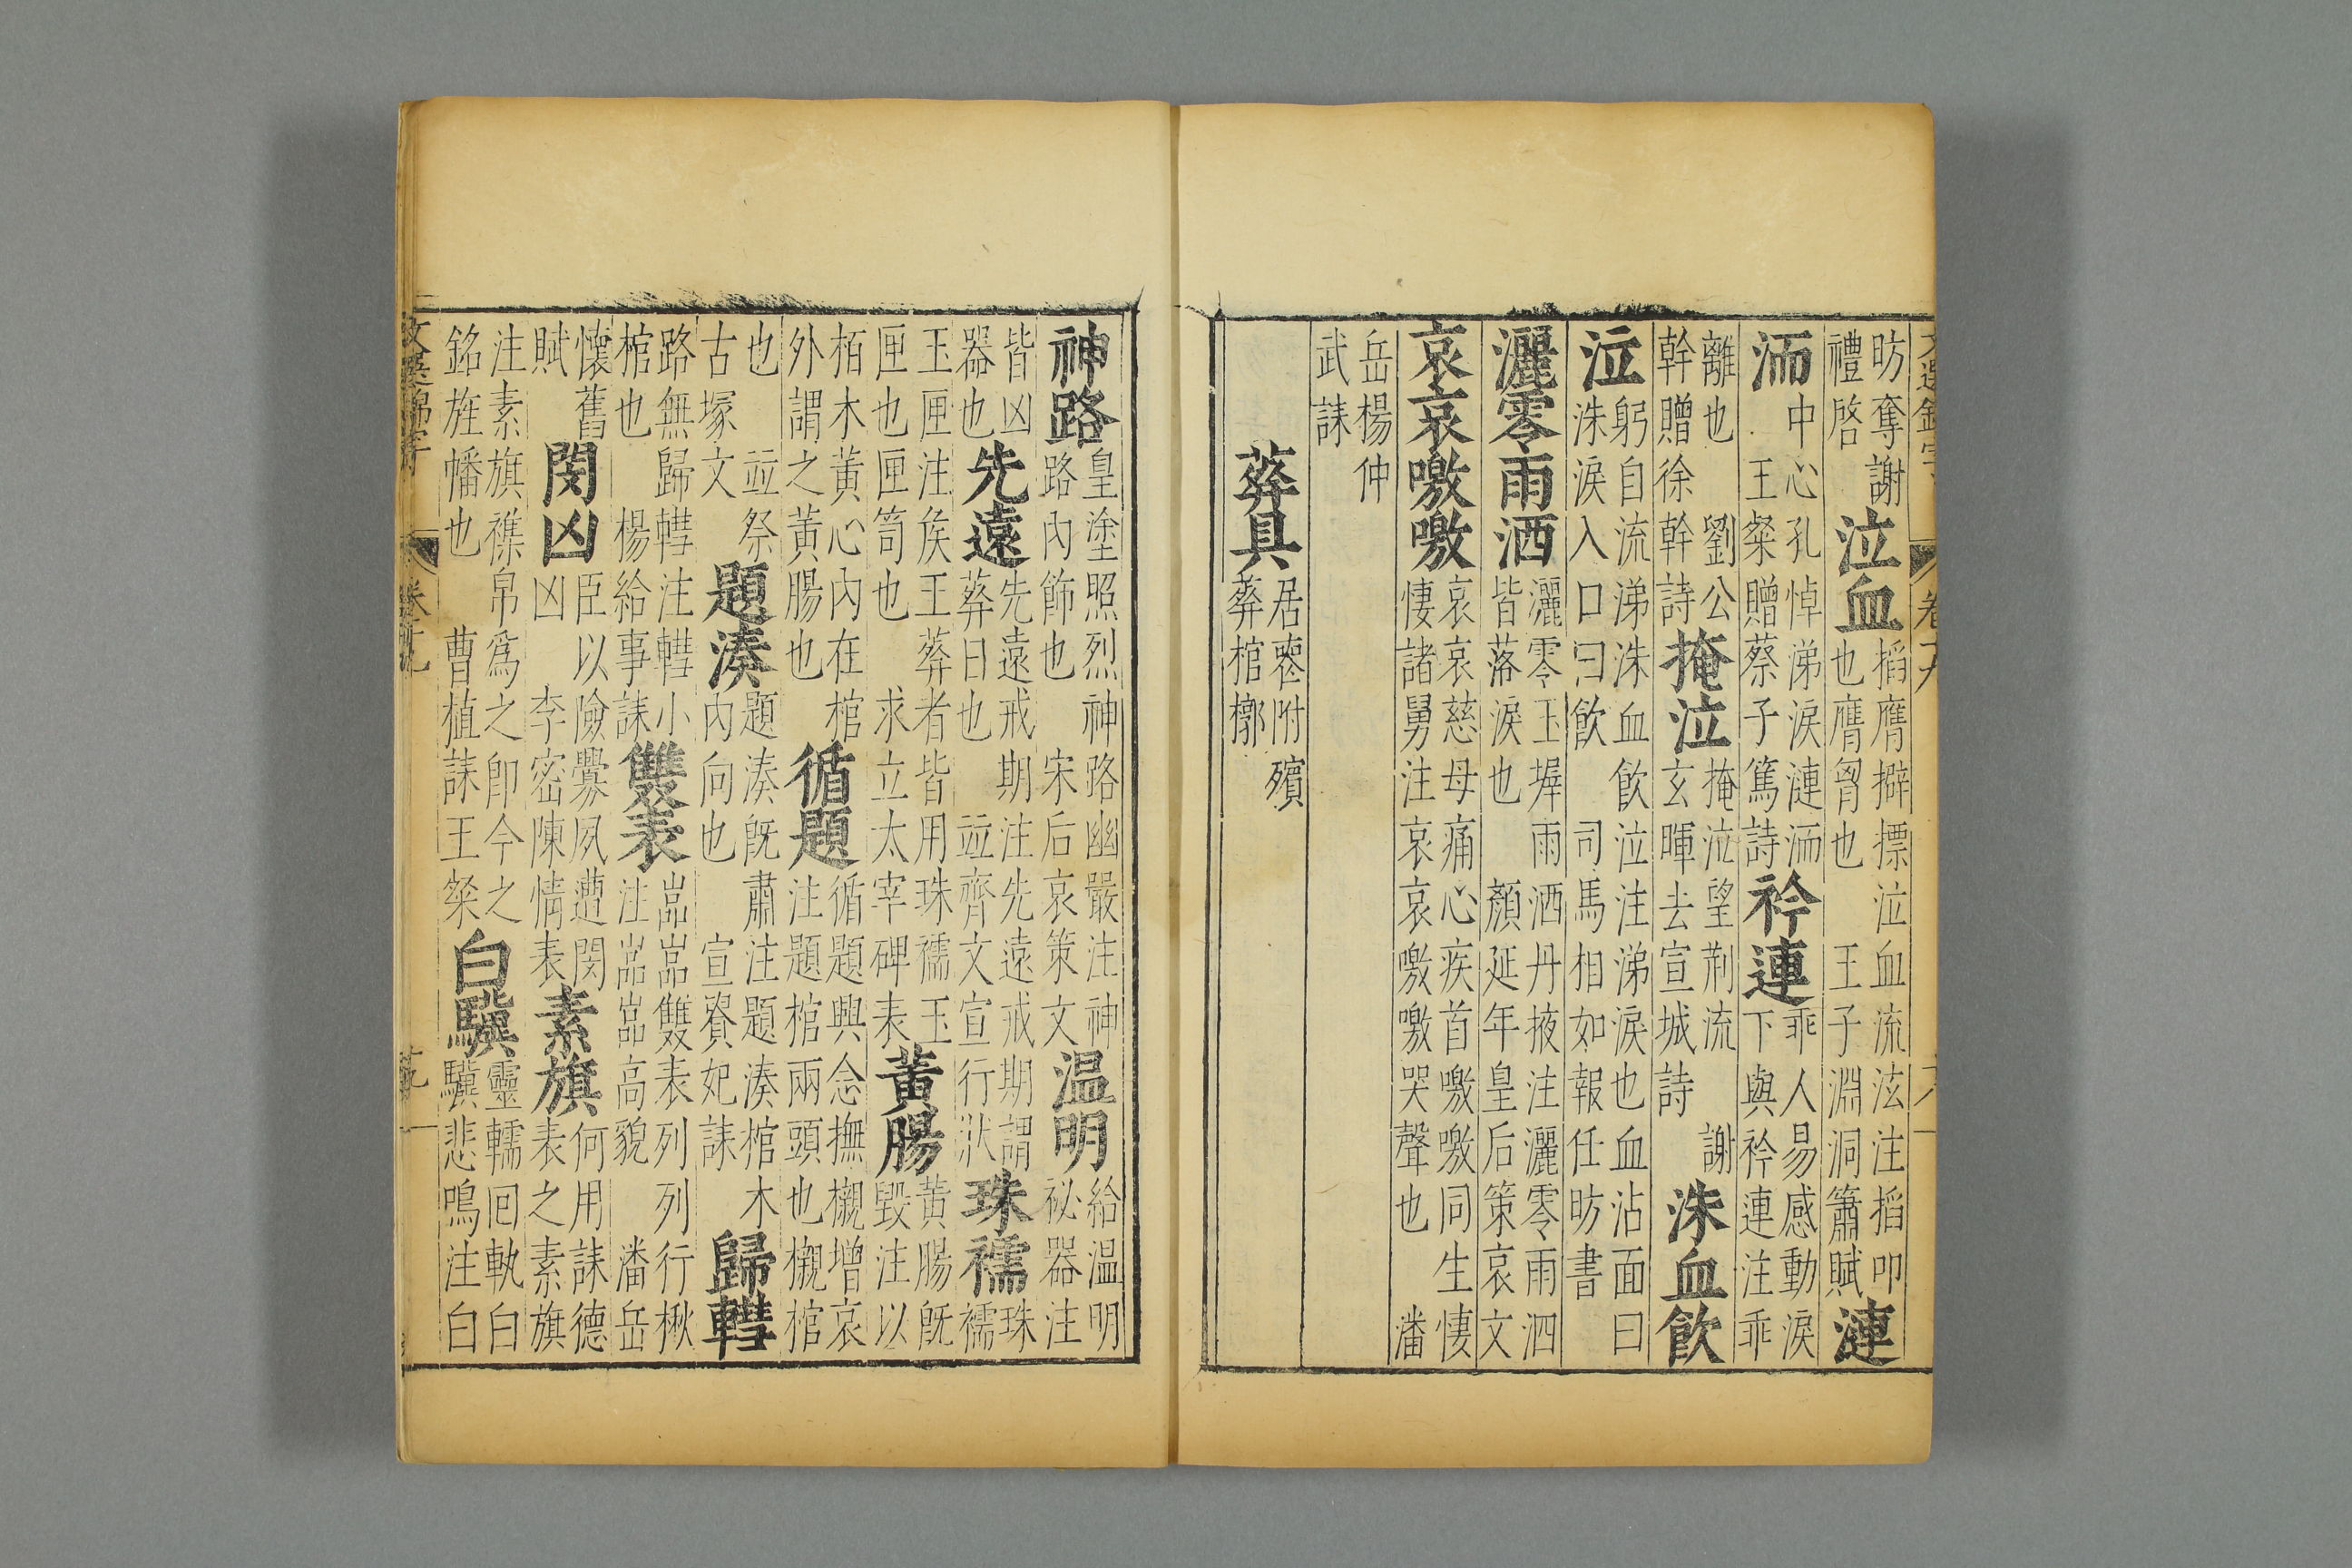 昉奪謝
禮啓
泣血
搯膺擗摽泣血流泫注搯叩
也膺胷也 王子淵洞簫賦
漣
洏
中心孔悼涕淚漣洏
王粲贈蔡子篤詩
衿連
乖人易感動淚
下與衿連注乖
離也 劉公
幹贈徐幹詩
掩泣
掩泣望荊流 謝
玄暉去宣城詩
洙血飲
泣
躬自流涕洙血飲泣注涕淚也血沾面曰
洙淚入口曰飲 司馬相如報任昉書
灑零雨洒
灑零玉墀雨洒丹掖注灑零雨泗
皆落淚也 顏延年皇后策哀文
哀哀噭噭
哀哀慈母痛心疾首噭噭同生悽
悽諸舅注哀哀噭噭哭聲也 潘
岳楊仲
武誄
葬具
居喪附殯
葬棺槨
神路
皇塗照烈神路幽嚴注神
路內飾也 宋后哀策文
温明
給温明
祕器注
皆凶
器也
先遠
先遠戒期注先遠戒期謂
葬日也 竝齊文宣行狀
珠襦
珠
襦
玉匣注矦王葬者皆用珠襦玉
匣也匣笥也 求立太宰碑表
黃腸
黃腸旣
毀注以
栢木黃心內在棺
外謂之黃腸也
循題
循題興念撫櫬增哀
注題棺兩頭也櫬棺
也 竝祭
古塚文
題湊
題湊旣肅注題湊棺木
內向也 宣貴妃誄
歸轊
路無歸轊注轊小
棺也 楊給事誄
雙表
嵓嵓雙表列列行楸
注嵓嵓高貌 潘岳
懷舊
賦
閔凶
臣以險釁夙遭閔
凶 李密陳情表
素旗
何用誄德
表之素旗
注素旗襍帛爲之卽今之
銘旌幡也 曹植誄王粲
白驥
靈轜回軌白
驥悲鳴注白
文選錦字